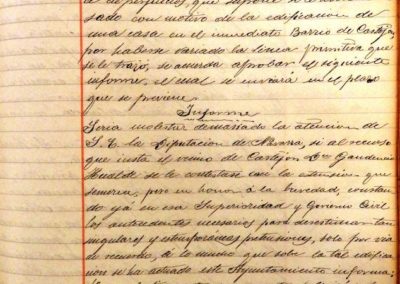 de perjuicios, que supone se le
sado con motivo de la edificacion de
una casa en el inmediato Barrio de Castejon
por haberse variado la linea primitiva que
se le trazó, se acuerda aprobar el siguiente
informe, el cual se enviará en el plazo
que se previene.
Informe
Seria molestar demasiado la atencion de
S. E. la Diputacion de Navarra, si al recurso
que insta el vecino de Castejon, Dn. Gaudencio
Hualde se le contestase con la extension que
se merecia, pero en honor á la brevedad, constan
do yá en esa Superioridad y Govierno Civil
los antecedentes necesarios para desestimar tan
singulares y estemporáneas pretensiones, solo por via
de recuerdo, de lo mucho que sobre la tal edifica
cion se ha actuado este Ayuntamiento informa: